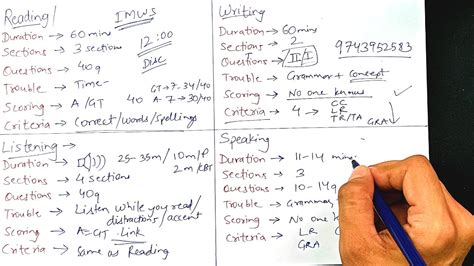 Reading/ IMWS
Duration → 60 mins
Sections → 3 sections
12:00
Disc
Questions → 40q
Trouble → Time-
Scoring → A/GT 40
GT→7-34/40
A-7→30/40
Criteria → Correct/words/spellings
Writing
Duration → 60mins
Sections → 2
Questions → II/I
9743952583
Trouble → Grammar + Concept
Scoring → No one knows
Criteria → 4 → CC
LR
TR/TA
GRA
Listening →
Duration → 25-35m/10m/P
2m/CBT
Sections → 4 sections
Questions → 40q
Trouble → Listen while you read/
distractions/accent
Scoring → A=GT Link
Criteria → Same as Reading
Speaking
Duration → 11-14 mins
Sections → 3
Questions → 10-14q
Trouble → Grammar,
Scoring → No one
Criteria → LR
GRA